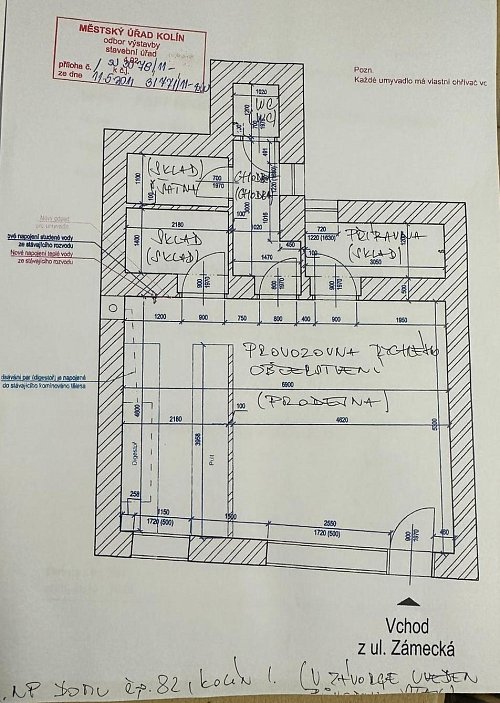 MĚSTSKÝ ÚŘAD KOLÍN
odbor výstavby
stavební úřad
příloha č.
k č.j.
ze dne 11.5.2011
Pozn.
Každé umyvadlo má vlastní ohřívač vo
1020
WC
(WC)
(SKLAD)
ŠATNA
1100
700
1970
CHODBA
(CHODBA)
Nový odpad
pro umyvadlo
ové napojení studené vody
ze stávajícího rozvodu
Nové napojení teplé vody
ze stávajícího rozvodu
2180
SKLAD
(SKLAD)
1400
1470
720
1220 (1630)
PŘÍPRAVNA
(SKLAD)
3050
900
1970
800
1970
900
1970
500
1200
900
750
800
400
900
1950
PROVOZOVNA RYCHLÉHO
OBČERSTVENÍ
6900
(PRODEJNA)
odsávání par (digestoř) je napojené
do stávajícího komínového tělesa
4600
2180
100
4620
5300
Digestoř
3958
Pult
258
1150
1720 (500)
1500
2550
1720 (500)
900
1970
450
Vchod
z ul. Zámecká
.NP DOMU čp. 82, KOLÍN I. (V ZÁVORCE UVEDEN